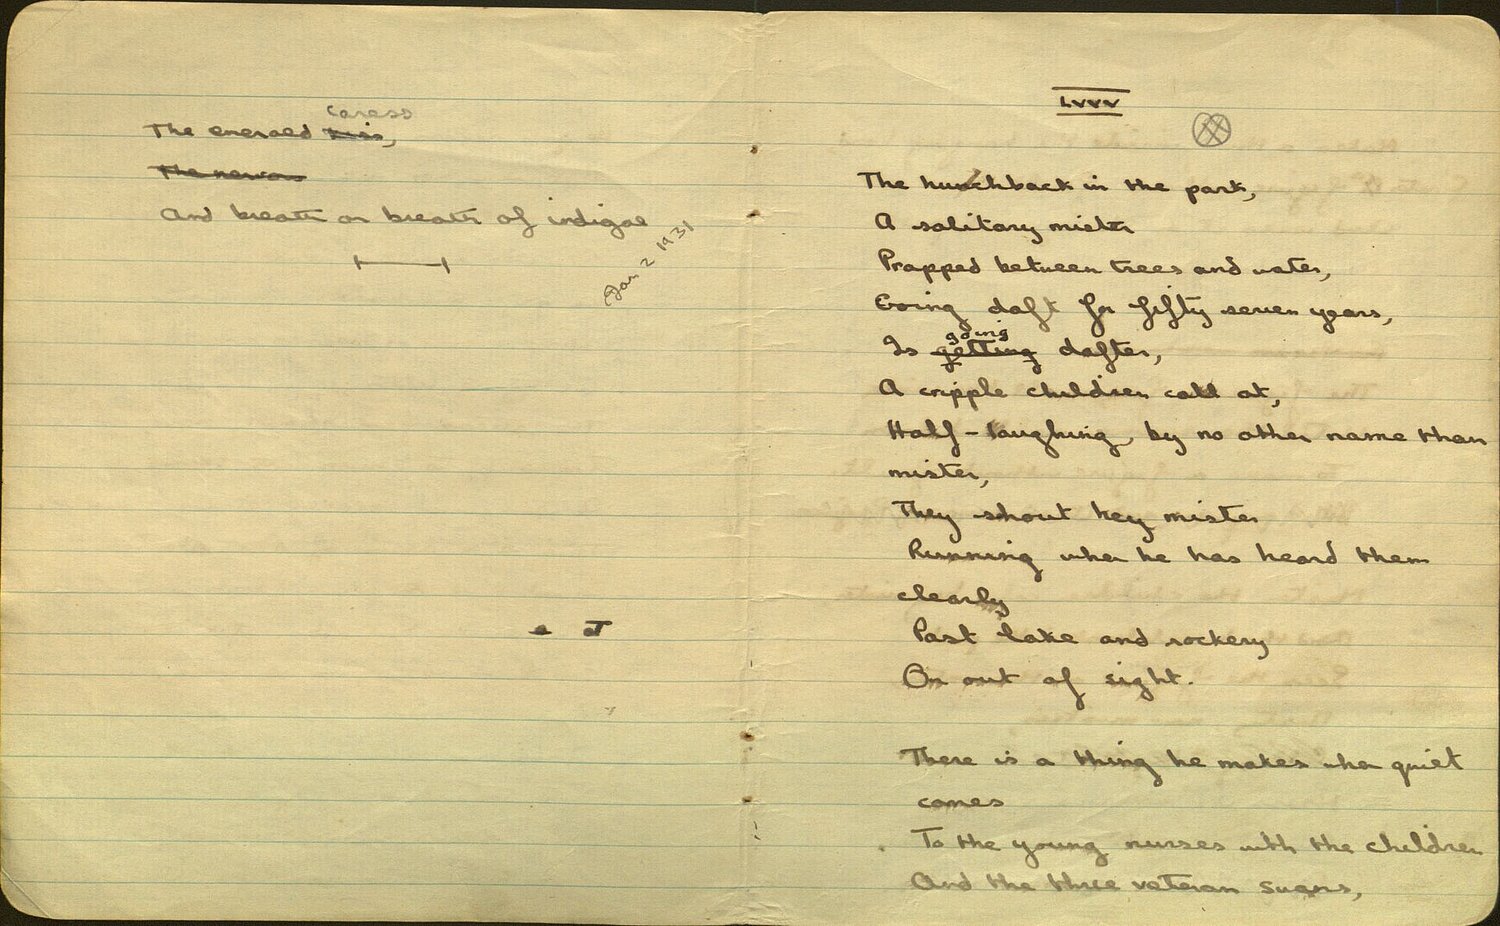 caress
The emerald kiss,
The nervous
And breath on breath of indigoe
Jan 2 1931
LVVV
The hunchback in the park,
A solitary mister
Propped between trees and water,
Going daft for fifty seven years,
going
Is getting dafter,
A cripple children call at,
Half-laughing, by no other name than
mister,
They shout hey mister
Running when he has heard them
clearly
Past lake and rockery
On out of sight.
There is a thing he makes when quiet
comes
To the young nurses with the children
And the three veteran swans,